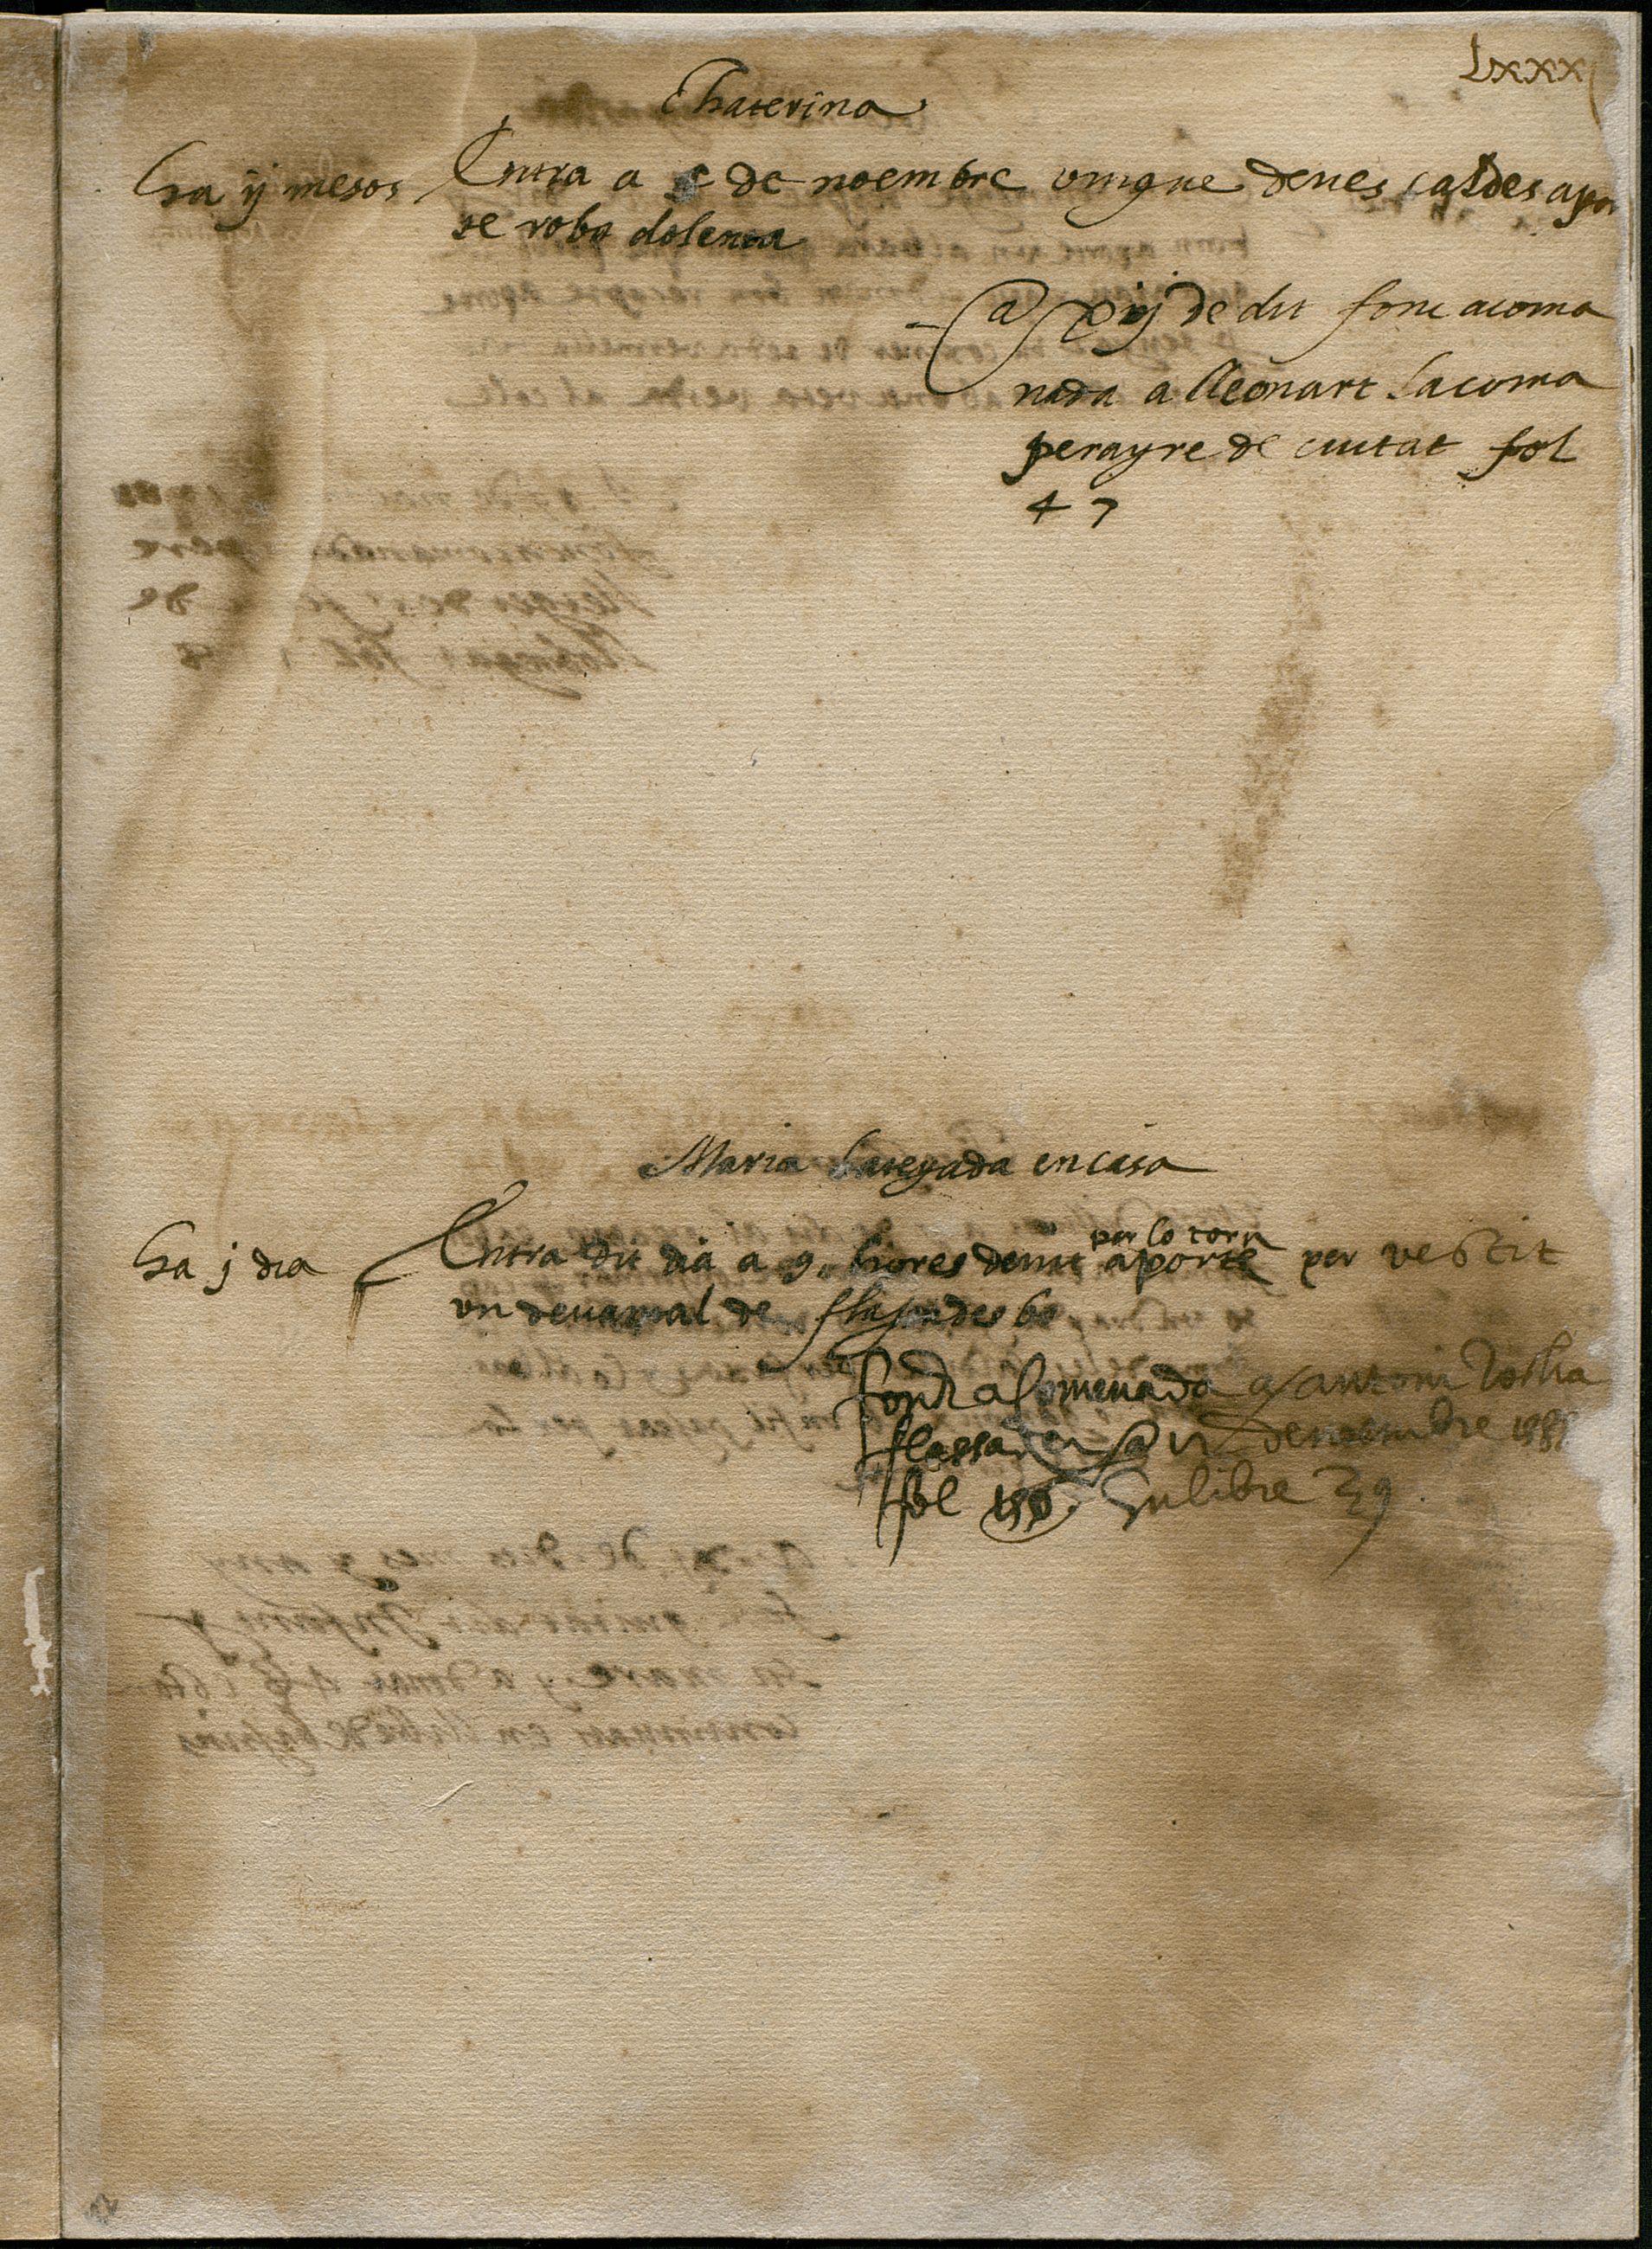 Lxxxj
Chaterina
ha ij mesos Entra a 8 de noembre vingue de nes caldes apor
te roba dolenta
@ xiij de dit fonc acoma
nada a lleonart Sacoma
perayre de ciutat fol
47
Maria bateyada en casa
ha j dia Entra dit dia a 9 hores de nit per lo torn aporte per vestit
un devantal de flasades bo
fonch acomenada a antoni
flassader a de noembre 158
fol en libre 39